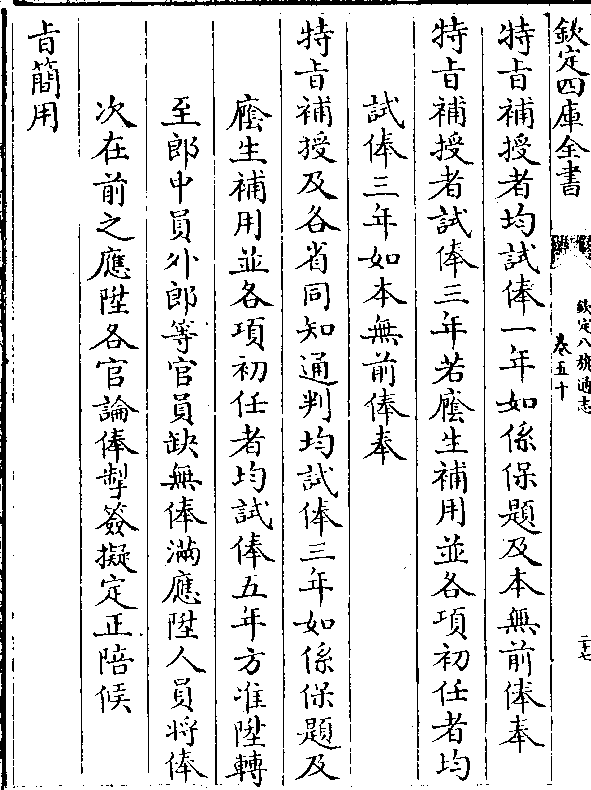 欽定四庫全書
欽定八旗通志
卷五十
二十七
特旨補授者均試俸一年如係保題及本無前俸奉
特旨補授者試俸三年若廕生補用並各項初任者均
試俸三年如本無前俸奉
特旨補授及各省同知通判均試俸三年如係保題及
廕生補用並各項初任者均試俸五年方准陞轉
至郎中員外郎等官員缺無俸滿應陞人員將俸
次在前之應陞各官論俸掣簽擬定正陪候
旨簡用